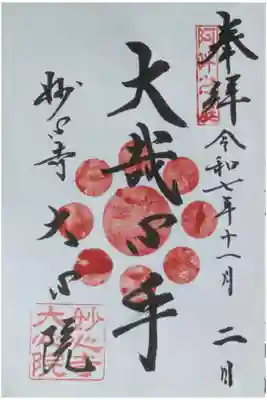 奉拝
令和七年十一月二日
大哉心手
妙心寺 大心院
妙心寺
大心院